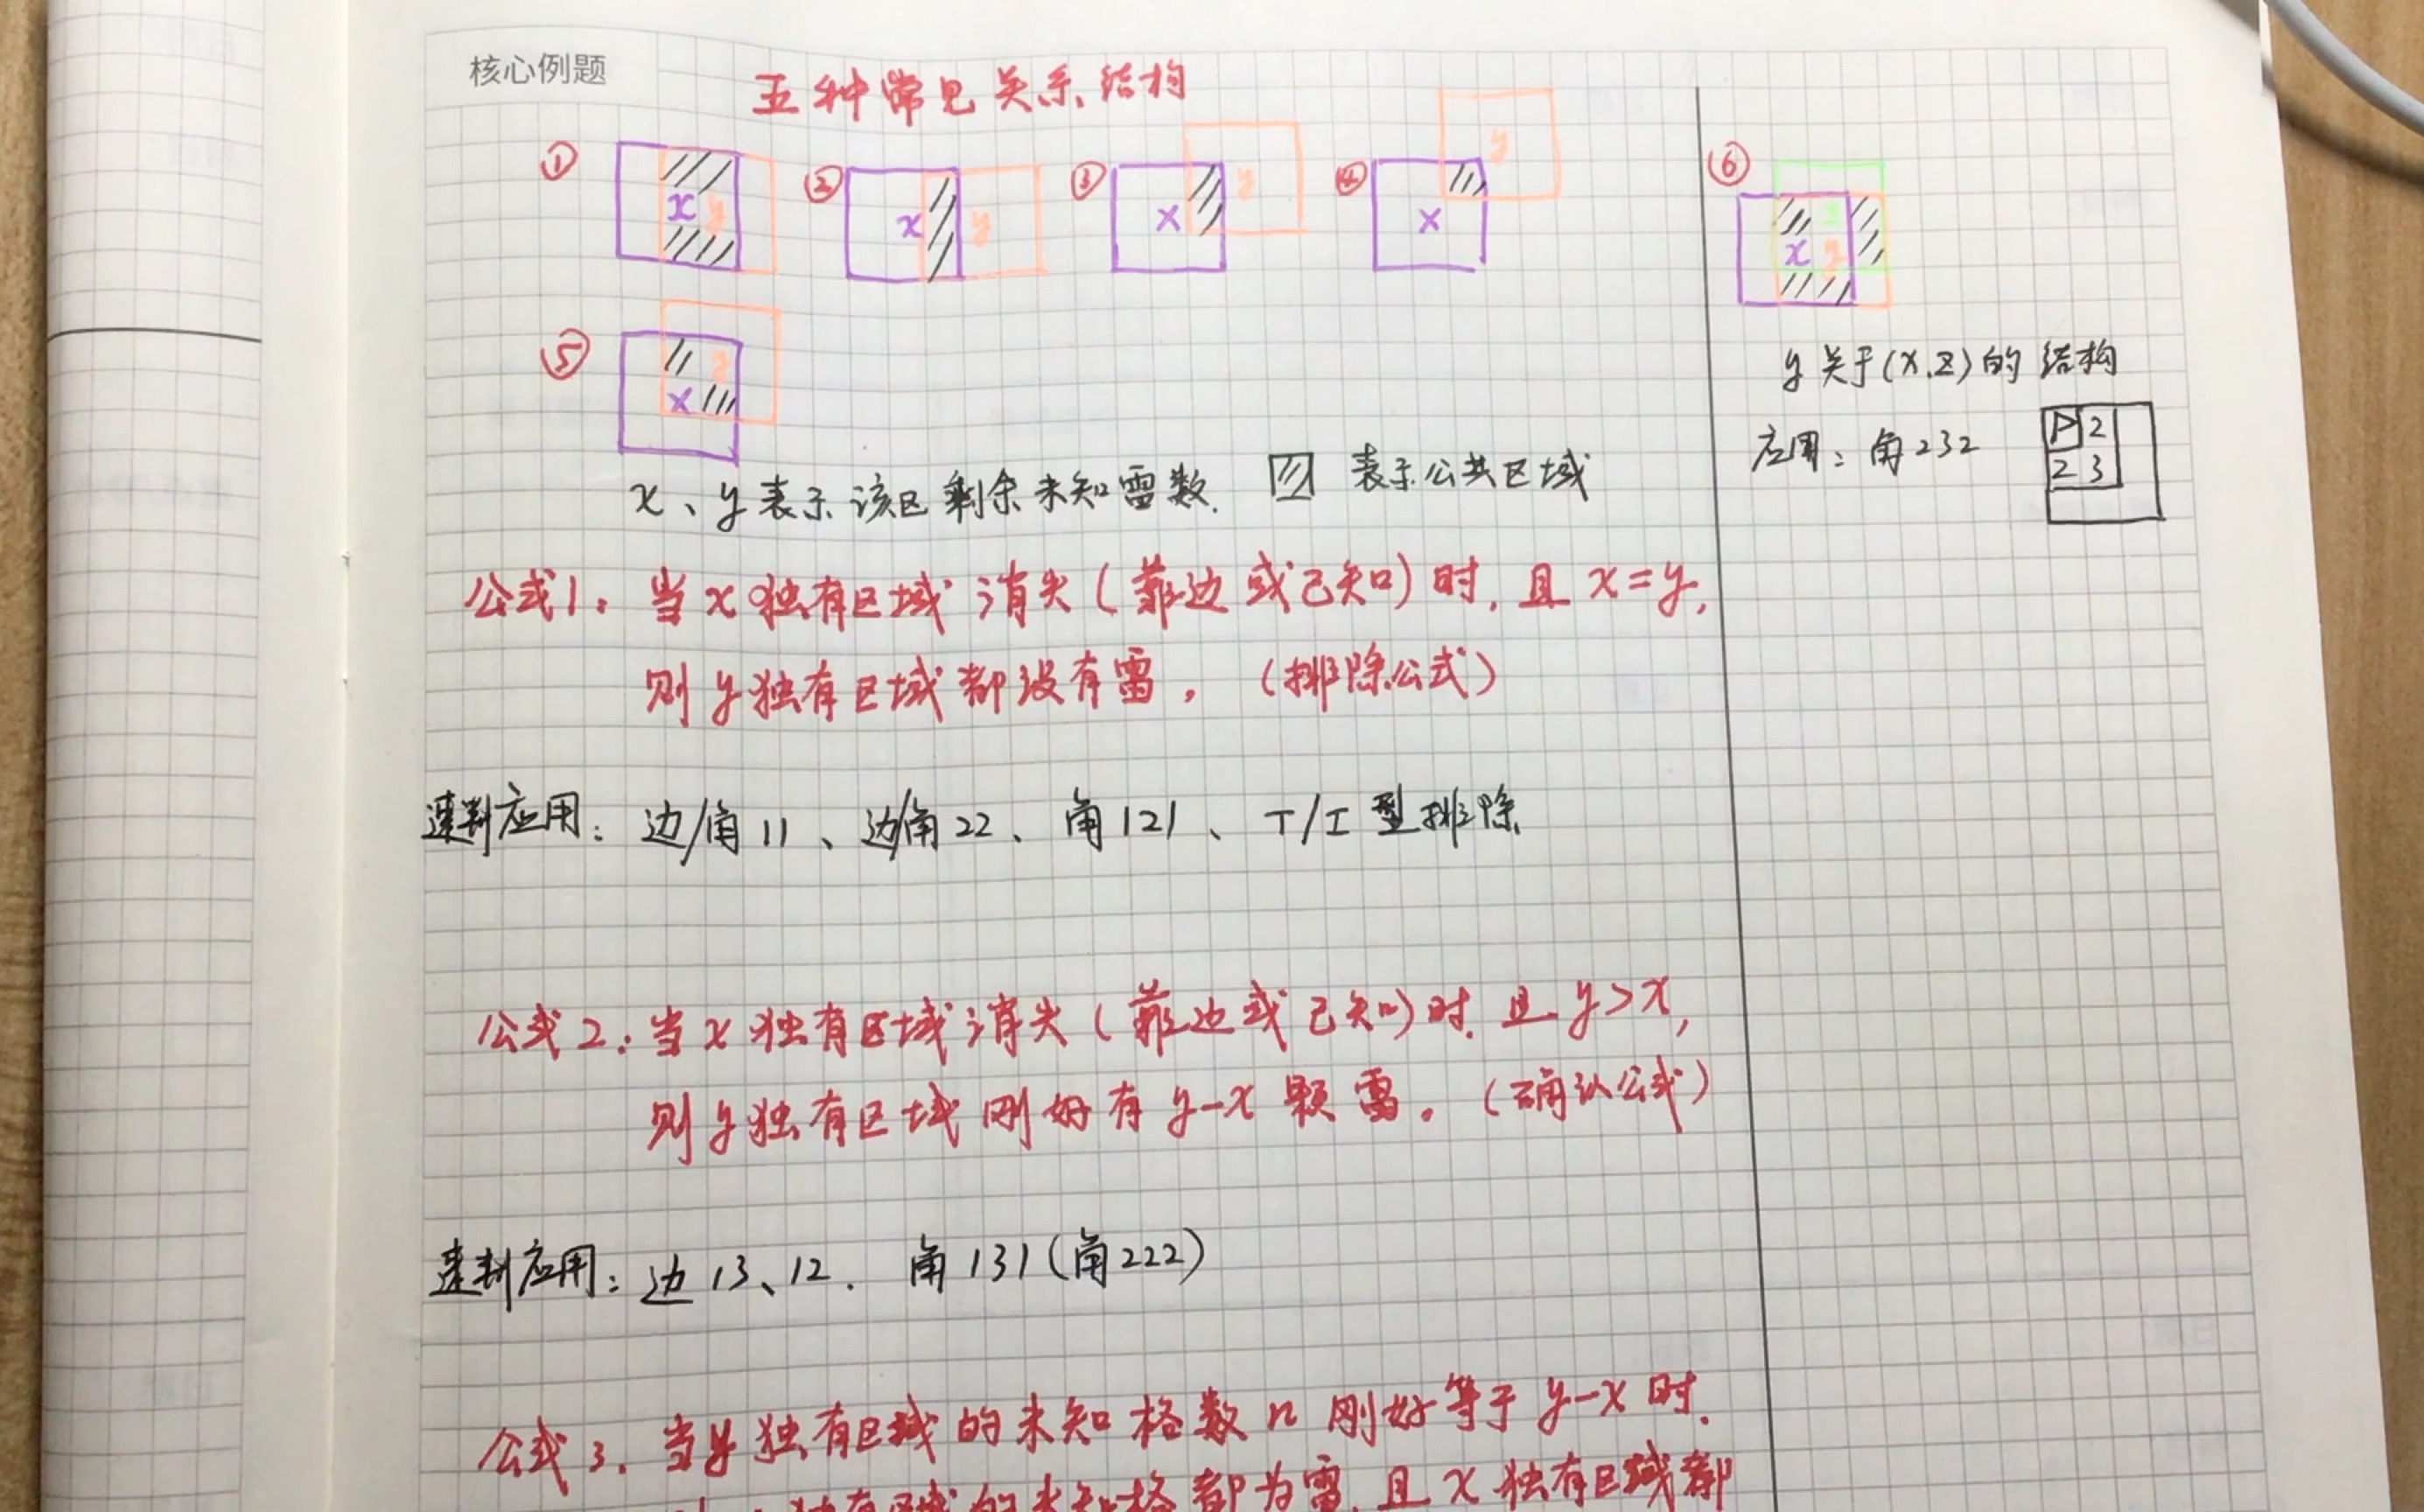 核心例题
五种常见关系结构
① x y ② x y ③ x y ④ x y
⑤ y x
⑥ z x y
y关于(x.z)的结构
应用：角232
P 2
2 3
x、y表示该区剩余未知雷数. 表示公共区域
公式1：当x独有区域消失(靠边或已知)时，且x=y,
则y独有区域都没有雷。(排除公式)
速判应用：边/角11、边/角22、角121、T/I型排除
公式2：当x独有区域消失(靠边或已知)时.且y>x,
则y独有区域刚好有y-x颗雷。(确认公式)
速判应用：边13、12. 角131(角222)
公式3. 当y独有区域的未知格数n刚好等于y-x时.
独有区域的未知格都为雷,且x独有区域都